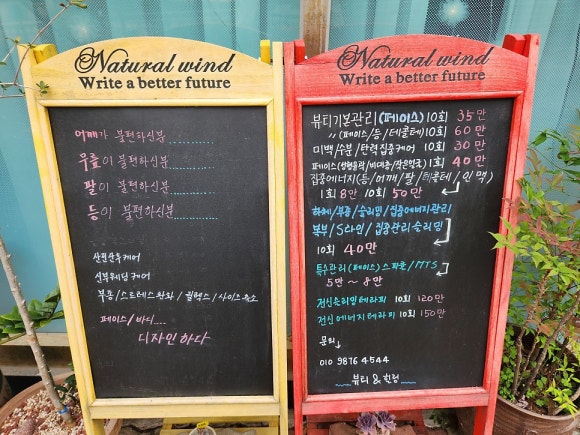 Natural wind
Write a better future
어깨가 불편하신분
무릎이 불편하신분
팔이 불편하신분
등이 불편하신분
산전산후케어
신부웨딩케어
부종/스트레스완화/릴렉스/사이즈감소
페이스/바디....
디자인하다
Natural wind
Write a better future
뷰티기본관리(페이스) 10회 35만
〃(페이스/등/데콜테) 10회 60만
미백/수분/탄력집중케어 10회 30만
1회 40만
집중에너지(등/어깨/팔/데콜테/인맥)
1회 8만 10회 50만
하체/부종/슬리밍/집중에너지관리
복부/S라인/집중관리슬리밍
10회 40만
특수관리(페이스) 스파큘/MTS
5만 ~ 8만
전신슬리밍테라피 10회 120만
전신에너지테라피 10회 150만
문의↓
010 9876 4544
뷰티&힐링